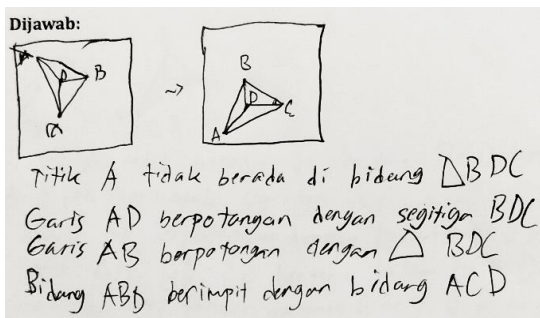 Dijawab:
A B D C
B D C A
Titik A tidak berada di bidang △BDC
Garis AD berpotongan dengan segitiga BDC
Garis AB berpotongan dengan △ BDC
Bidang ABD berimpit dengan bidang ACD